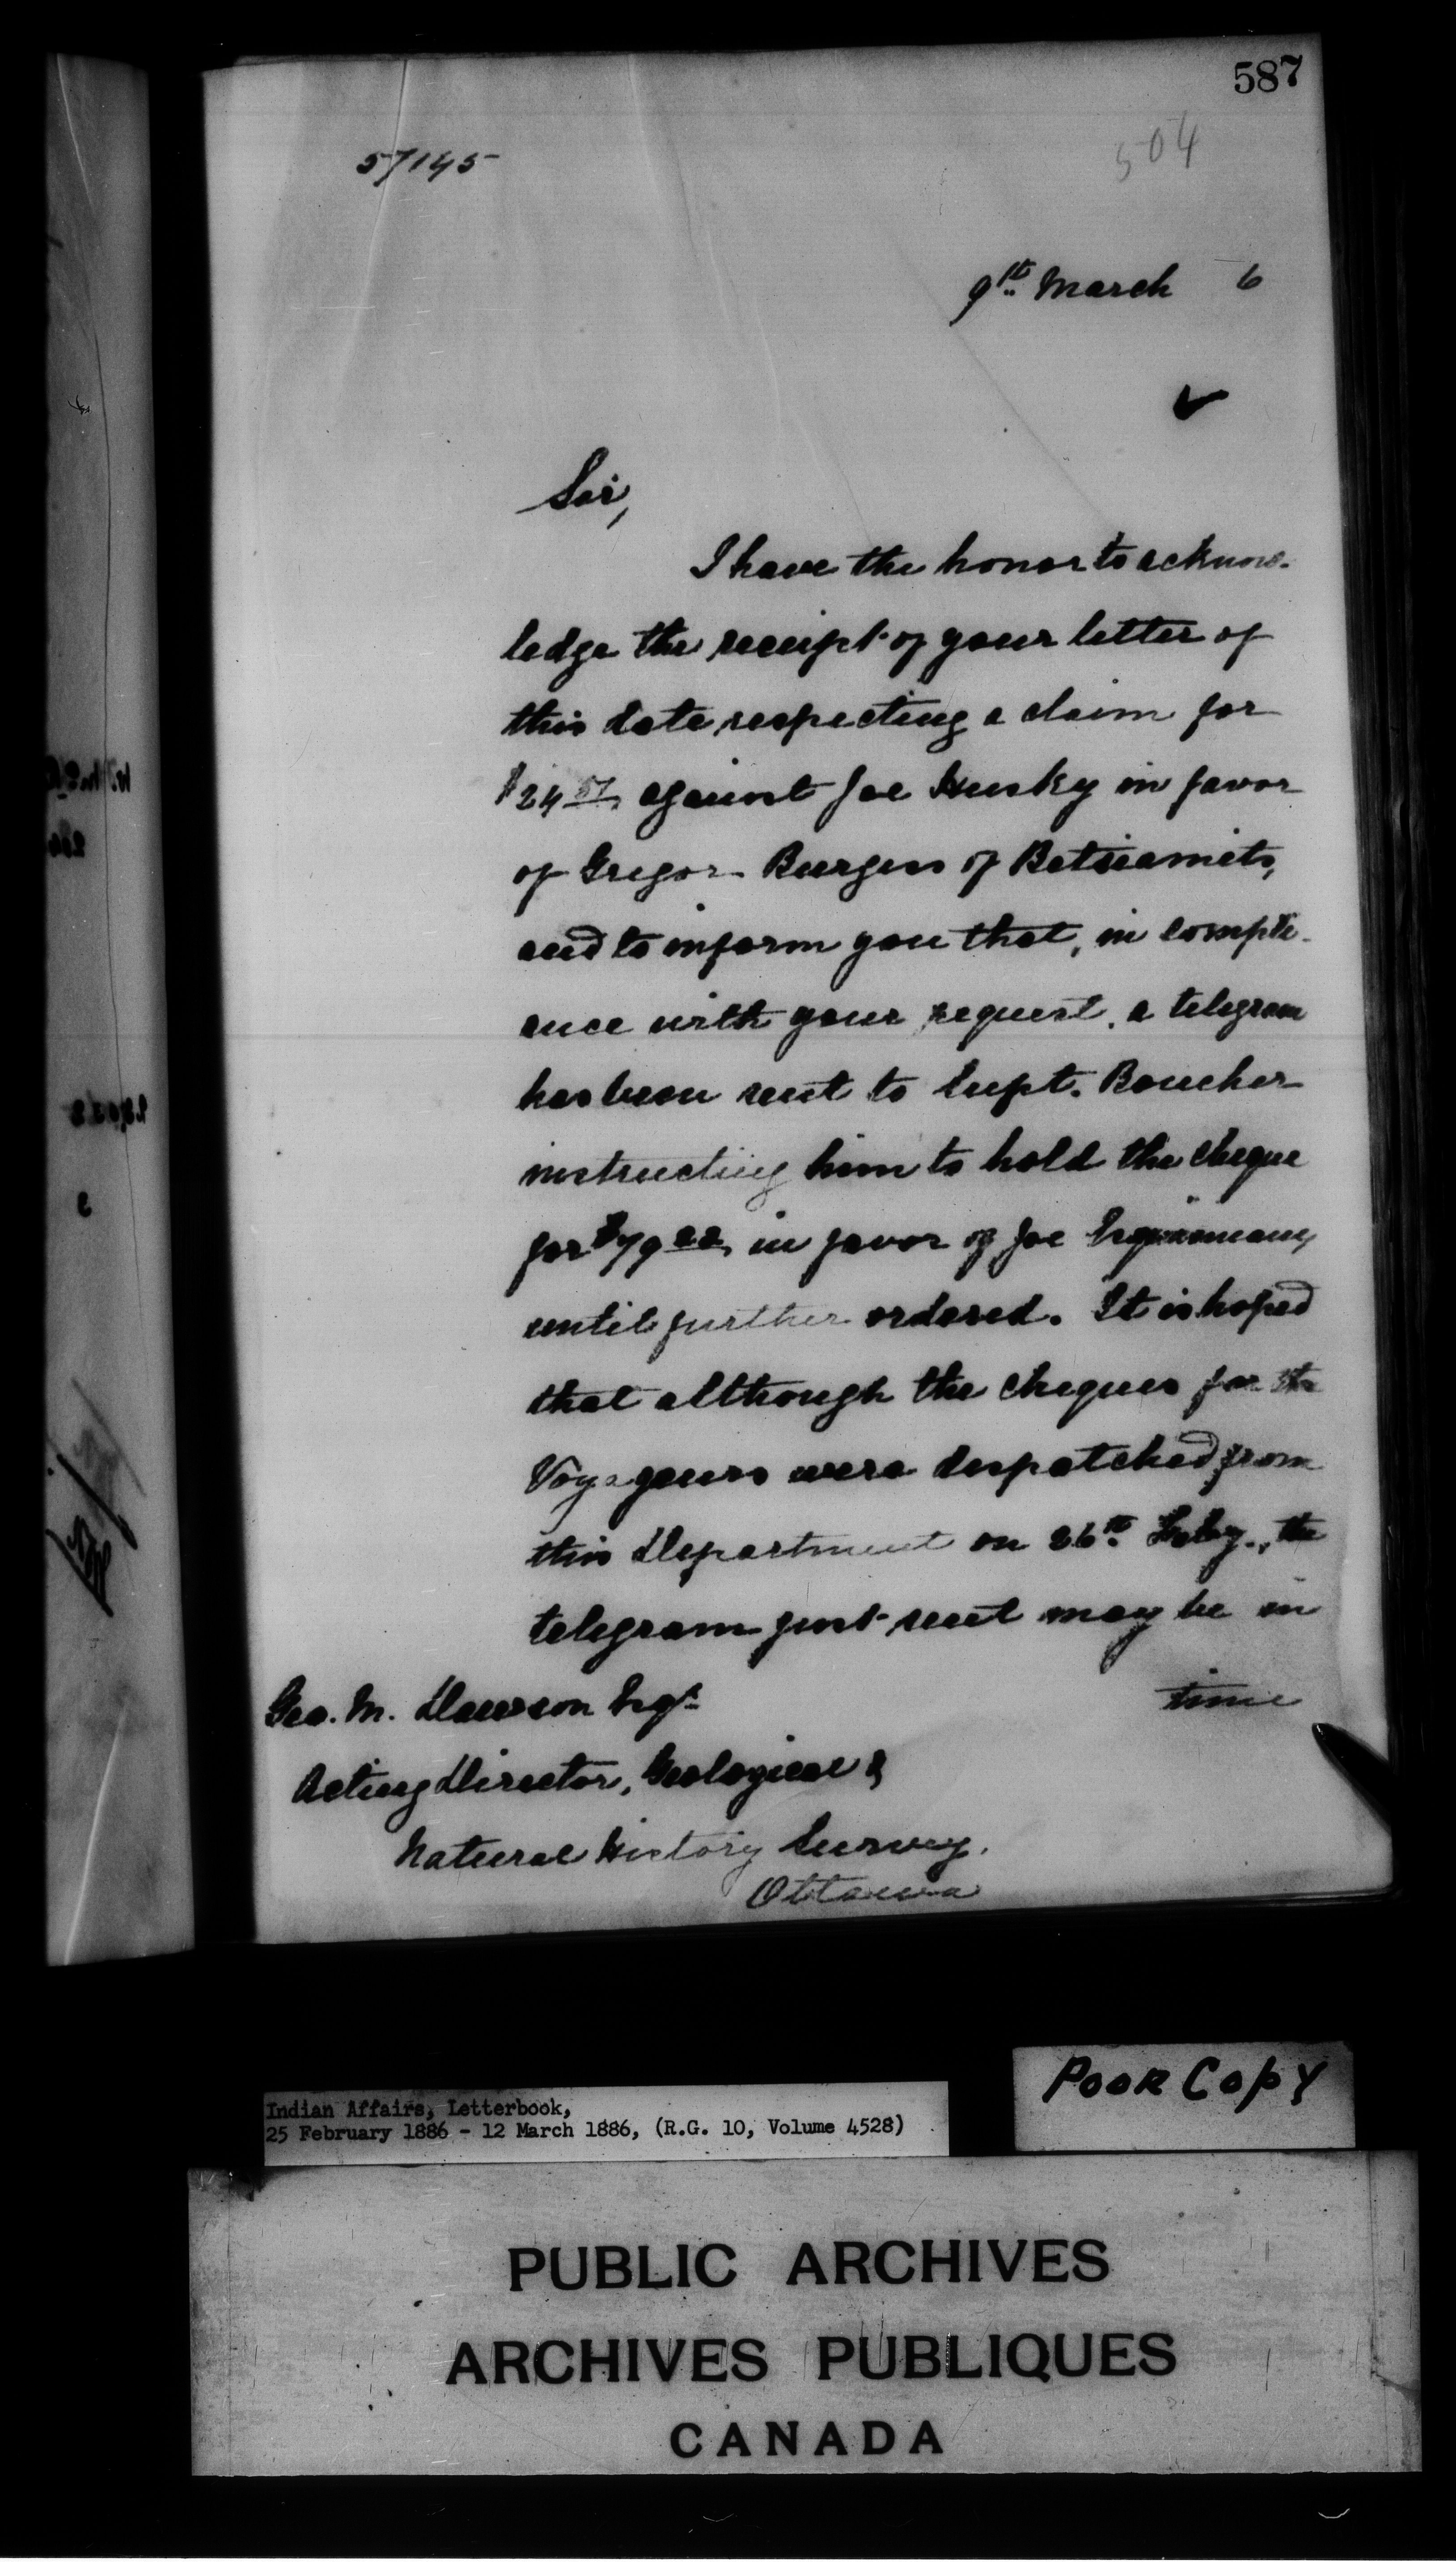 587
504
57145
9th March 6
Sir,
I have the honor to acknow-
ledge the receipt of your letter of
this date respecting a claim for
$24 57, against Joe Husky in favor
of Gregor Burgess of Betsiamits,
and to inform you that, in compli-
ance with your request, a telegram
has been sent to Supt. Boucher
instructing him to hold the cheque
for $79 22, in favor of Joe
until further ordered. It is hoped
that although the cheques for the
Voyageurs were despatched from
this Department on 26th Feby., the
telegram just sent may be in
time
Geo. M. Dawson Esqr
Acting Director, Geological &
Natural History Survey.
Ottawa
Poor Copy
Indian Affairs, Letterbook,
25 February 1886 - 12 March 1886, (R.G. 10, Volume 4528)
PUBLIC ARCHIVES
ARCHIVES PUBLIQUES
CANADA